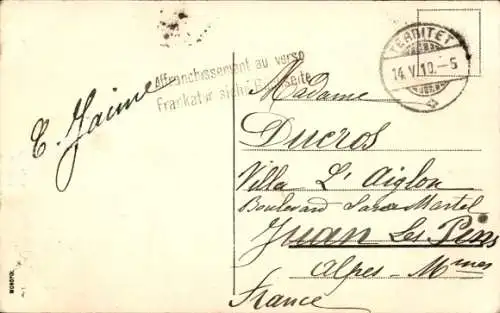 TERRITET
14.V.10.-5
Affranchissement au verso
Frankatur siehe Rückseite
E. Jaime
Madame
Ducros
Villa L'Aiglon
Boulevard Martel
Juan Les Pins
Alpes-Mmes
France